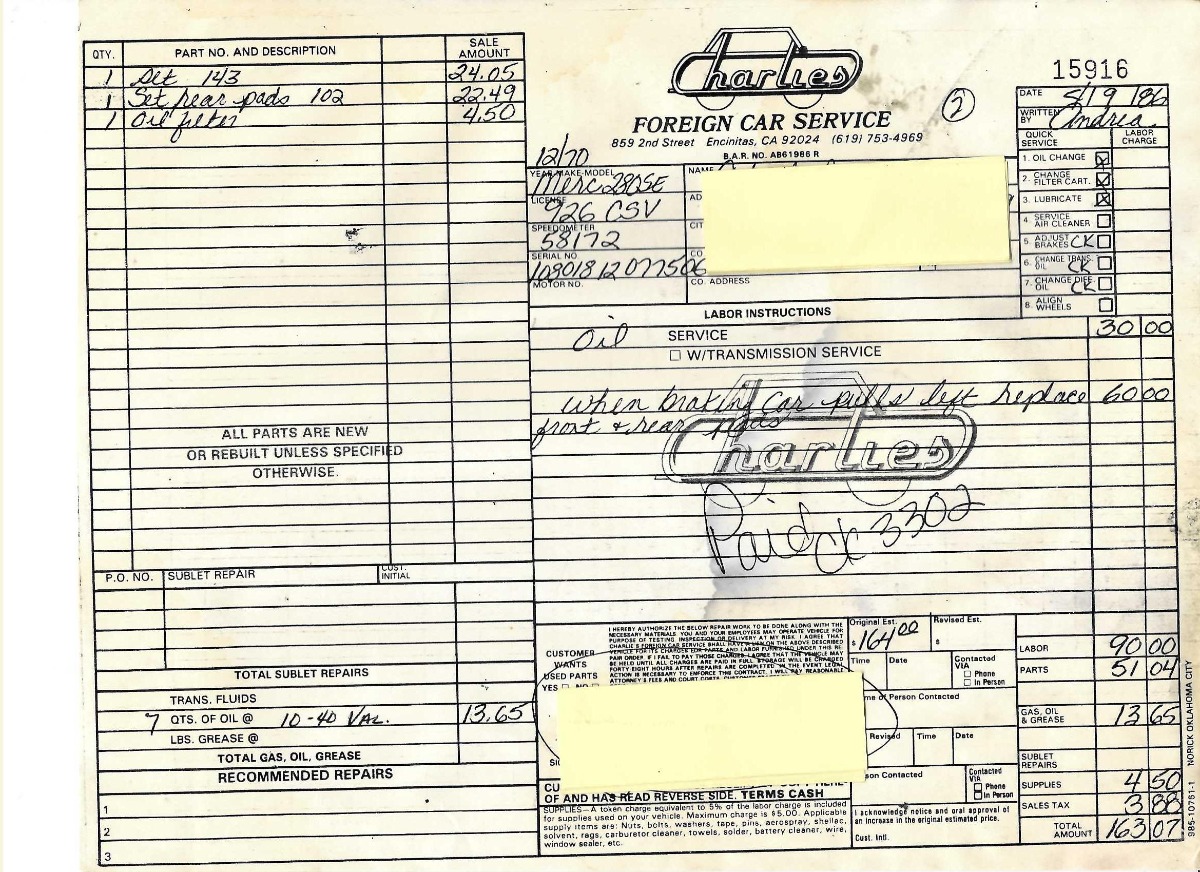 QTY. PART NO. AND DESCRIPTION SALE AMOUNT
1 Set 143 24.05
1 Set rear pads 102 22.49
1 Oil filter 4.50
ALL PARTS ARE NEW
OR REBUILT UNLESS SPECIFIED
OTHERWISE.
P.O. NO. SUBLET REPAIR CUST. INITIAL
TOTAL SUBLET REPAIRS
TRANS. FLUIDS
7 QTS. OF OIL @ 10-40 VAL. 13.65
LBS. GREASE @
TOTAL GAS, OIL, GREASE
RECOMMENDED REPAIRS
1
2
3
Charlies
FOREIGN CAR SERVICE
859 2nd Street Encinitas, CA 92024 (619) 753-4969
B.A.R. NO. AB61986 R
2
15916
DATE 5/19/86
WRITTEN BY Andrea
QUICK SERVICE LABOR CHARGE
1. OIL CHANGE
2. CHANGE FILTER CART.
3. LUBRICATE
4. SERVICE AIR CLEANER
5. ADJUST BRAKES CK
6. CHANGE TRANS. OIL CK
7. CHANGE DIFF. OIL CK
8. ALIGN WHEELS
12/70
YEAR-MAKE-MODEL
Merc 280SE
LICENSE
926 CSV
SPEEDOMETER
58172
SERIAL NO.
10801812077506
MOTOR NO.
NAME
AD
CIT
CO
CO. ADDRESS
LABOR INSTRUCTIONS
Oil SERVICE 30 00
W/TRANSMISSION SERVICE
when braking car pulls left replace 60 00
front + rear pads
Charlies
Paid CK 3302
CUSTOMER
WANTS
USED PARTS
YES NO
I HEREBY AUTHORIZE THE BELOW REPAIR WORK TO BE DONE ALONG WITH THE
NECESSARY MATERIALS. YOU AND YOUR EMPLOYEES MAY OPERATE VEHICLE FOR
PURPOSE OF TESTING, INSPECTION OR DELIVERY AT MY RISK. I AGREE THAT
CHARLIE'S FOREIGN CAR SERVICE SHALL HAVE A LIEN ON THE ABOVE DESCRIBED
VEHICLE FOR ITS CHARGES FOR PARTS AND LABOR FURNISHED UNDER THIS RE-
PAIR ORDER. IF I FAIL TO PAY THOSE CHARGES, I AGREE THAT THE VEHICLE MAY
BE HELD UNTIL ALL CHARGES ARE PAID IN FULL. STORAGE WILL BE CHARGED
FORTY EIGHT HOURS AFTER REPAIRS ARE COMPLETED. IN THE EVENT LEGAL
ACTION IS NECESSARY TO ENFORCE THIS CONTRACT, I WILL PAY REASONABLE
ATTORNEY'S FEES AND COURT COSTS.
CU
OF AND HAS READ REVERSE SIDE. TERMS CASH
SUPPLIES—A token charge equivalent to 5% of the labor charge is included
for supplies used on your vehicle. Maximum charge is $5.00. Applicable
supply items are: Nuts, bolts, washers, tape, pins, aerospray, shellac,
solvent, rags, carburetor cleaner, towels, solder, battery cleaner, wire,
window sealer, etc.
Original Est. $164 00 Revised Est. $
Time Date Contacted VIA Phone In Person
me of Person Contacted
Revised Time Date
son Contacted Contacted VIA Phone In Person
I acknowledge notice and oral approval of
an increase in the original estimated price.
Cust. Intl.
LABOR 90 00
PARTS 51 04
GAS, OIL & GREASE 13 65
SUBLET REPAIRS
SUPPLIES 4 50
SALES TAX 3 88
TOTAL AMOUNT 163 07
985-10761-1 NORICK OKLAHOMA CITY